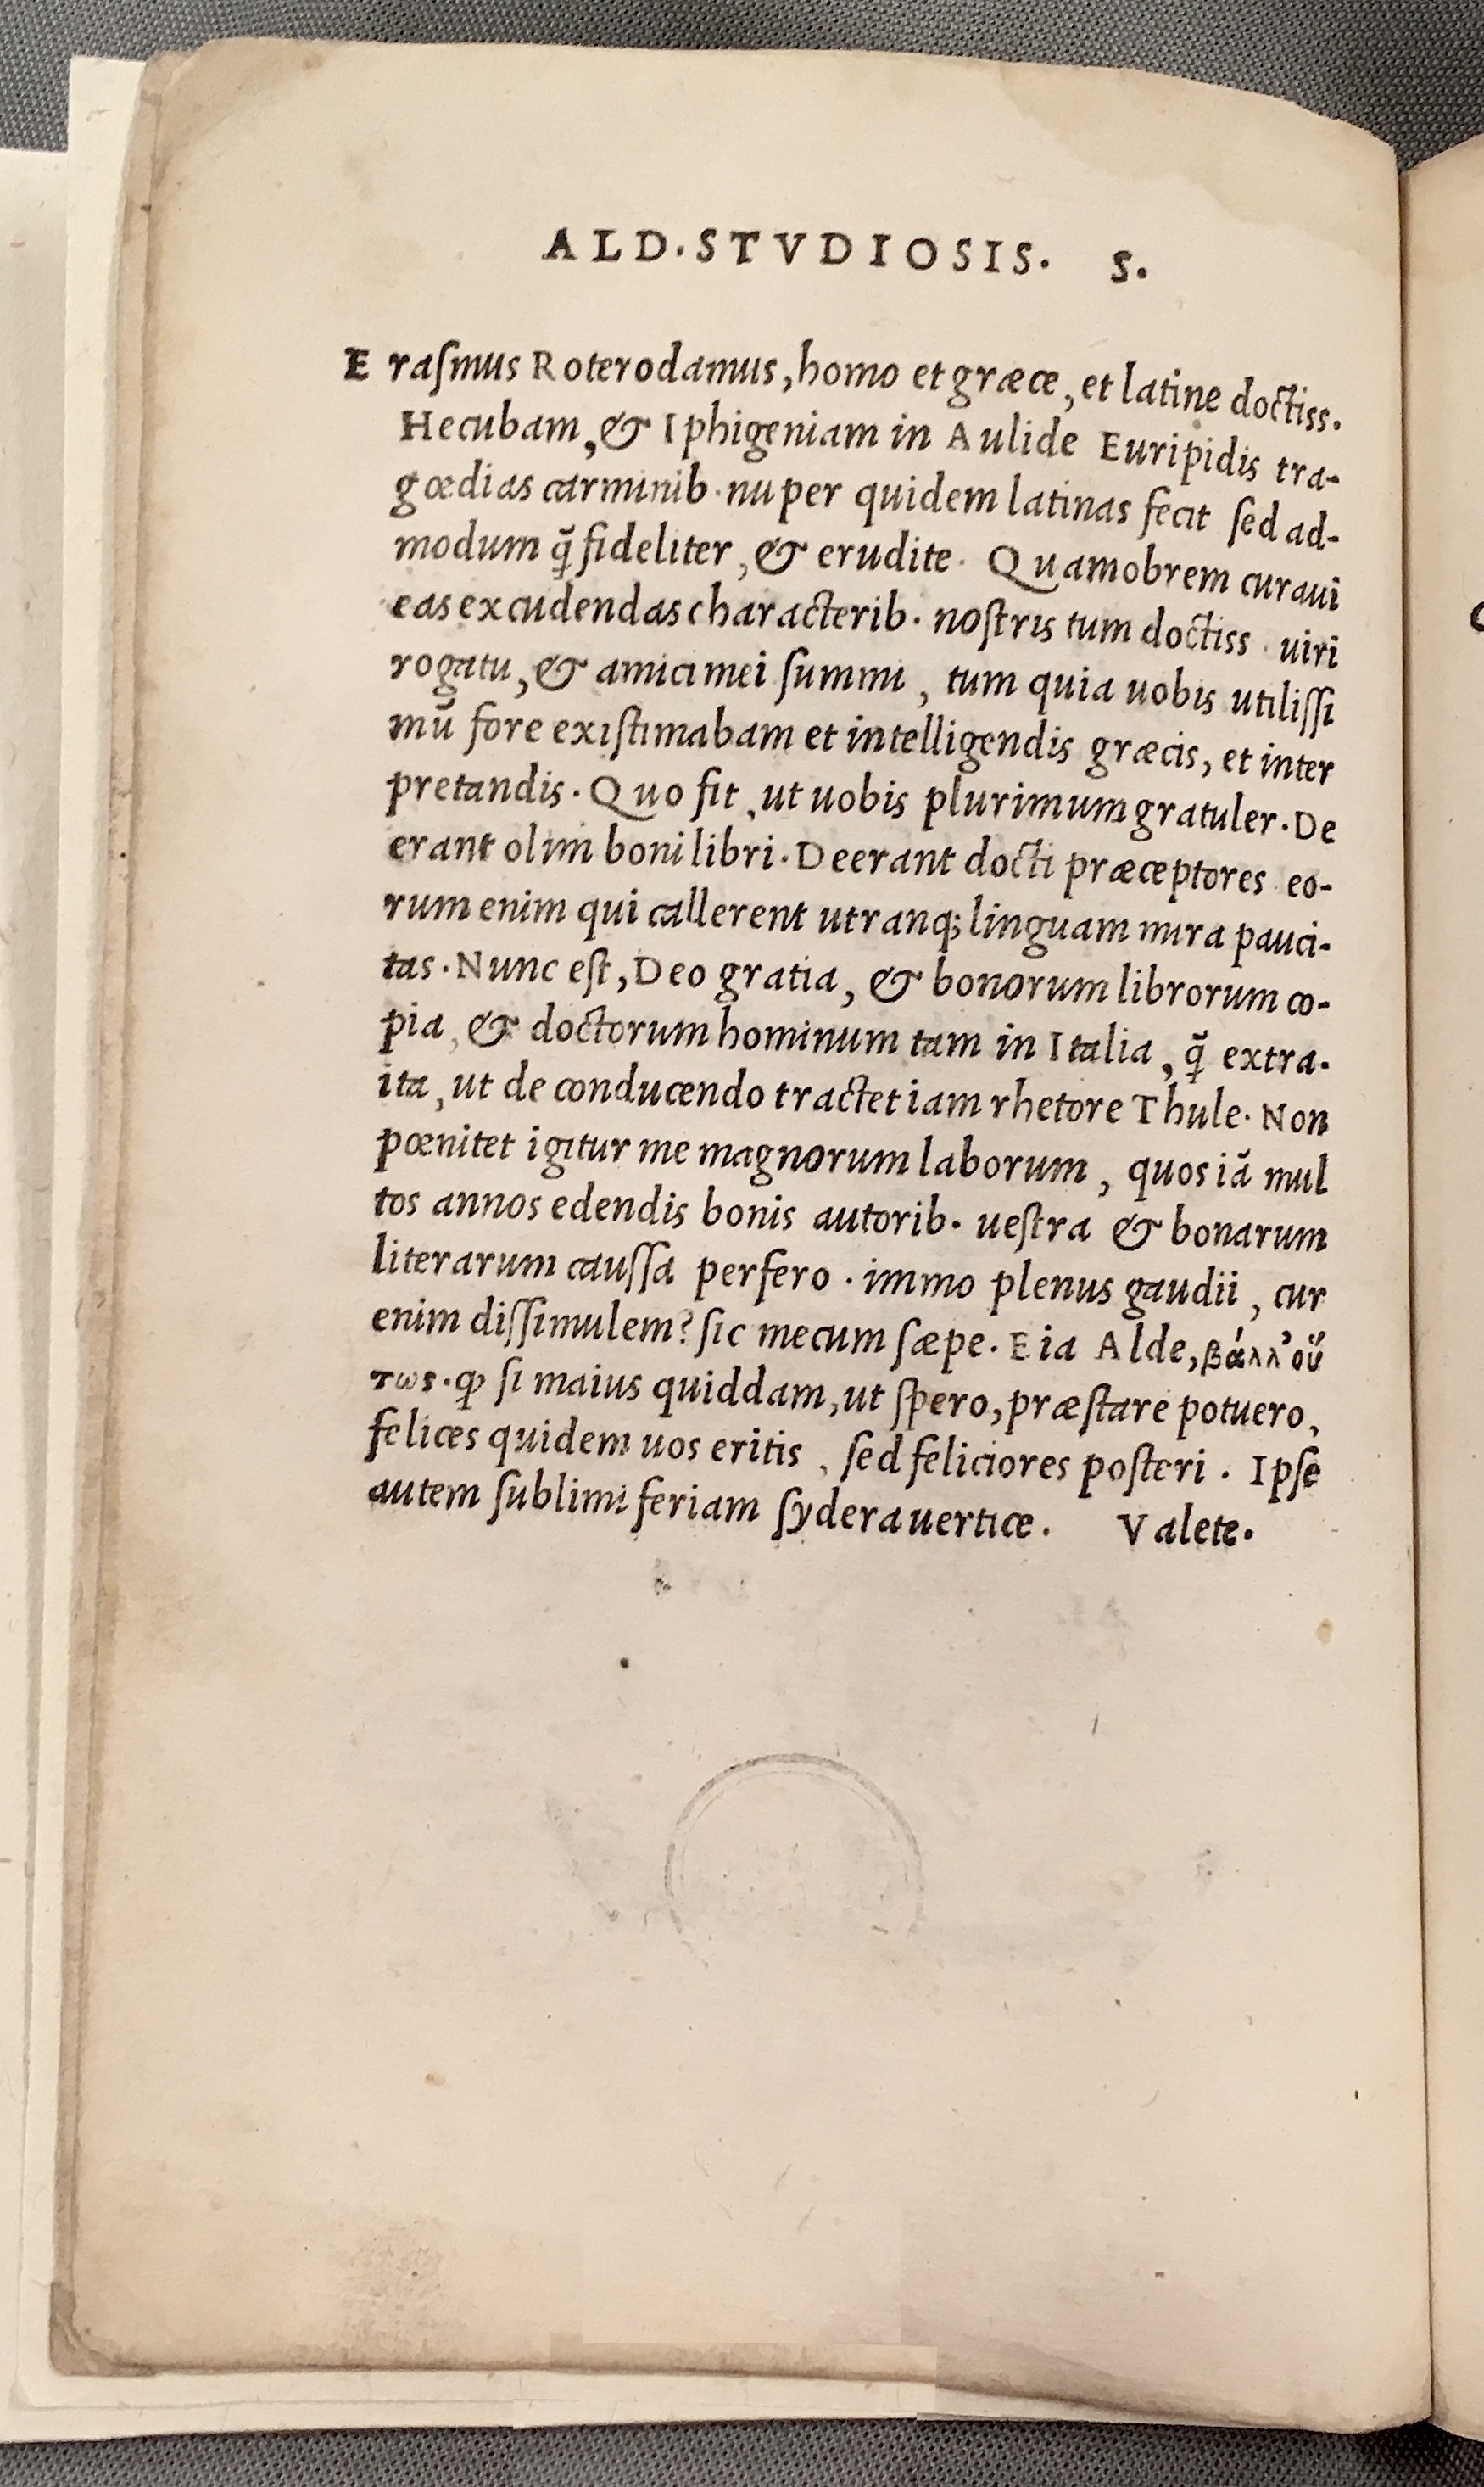 ALD. STVDIOSIS. S.
Eraſmus Roterodamus, homo et græce, et latine doctiss.
Hecubam, & Iphigeniam in Aulide Euripidis tra-
gœdias carminib. nuper quidem latinas fecit sed ad-
modum q̃ fideliter, & erudite. Quamobrem curaui
eas excudendas characterib. noſtris tum doctiss. uiri
rogatu, & amici mei ſummi, tum quia uobis utiliſſi
mū fore exiſtimabam et intelligendis græcis, et inter
pretandis. Quo fit, ut uobis plurimum gratuler. De
erant olim boni libri. Deerant docti præceptores eo-
rum enim qui callerent utranq; linguam mira pauci-
tas. Nunc eſt, Deo gratia, & bonorum librorum co-
pia, & doctorum hominum tam in Italia, q̃ extra.
ita, ut de conducendo tractet iam rhetore Thule. Non
pœnitet igitur me magnorum laborum, quos iā mul
tos annos edendis bonis autorib. ueſtra & bonarum
literarum cauſſa perfero. immo plenus gaudii, cur
enim diſſimulem? ſic mecum ſæpe. Eia Alde, βάλλ' οὕ
τως. ꝙ ſi maius quiddam, ut ſpero, præſtare potuero,
felices quidem uos eritis, ſed feliciores poſteri. Ipſe
autem ſublimi feriam ſydera uertice. Valete.